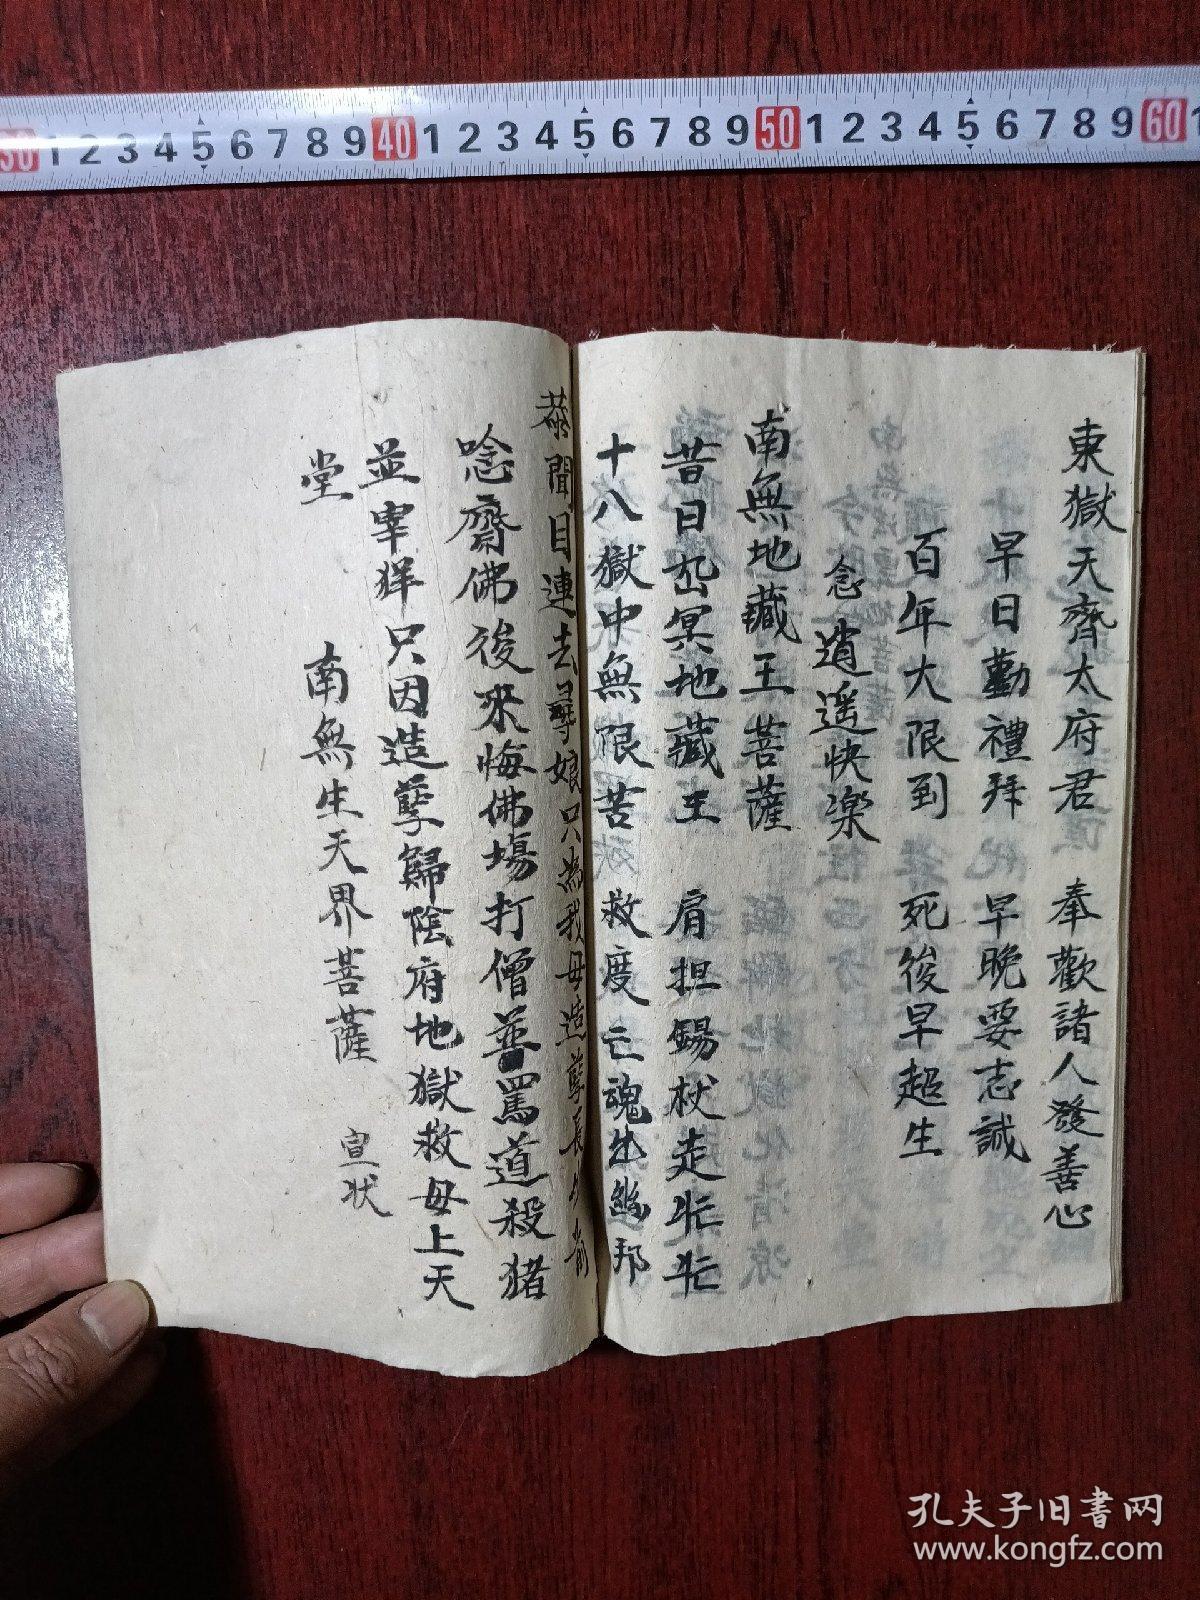 30 1 2 3 4 5 6 7 8 9 40 1 2 3 4 5 6 7 8 9 50 1 2 3 4 5 6 7 8 9 60 1
東獄天齊太府君 奉歡諸人發善心
早日勸禮拜 早晚要志誠
百年大限到 死後早超生
念逍遥快楽
南無地藏王菩薩
昔日出冥地藏王 肩担錫杖走忙忙
十八獄中無限苦 救度亡魂出幽邦
恭聞目連去尋娘只為我母造孽長
唸齋佛後來悔佛塲打僧並罵道殺猪
並宰羊只因造孽歸陰府地獄救母上天
堂 南無生天界菩薩 宣状
孔夫子旧书网
www.kongfz.com